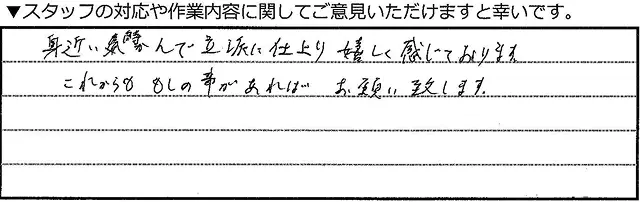 ▼スタッフの対応や作業内容に関してご意見いただけますと幸いです。
身近い んで立派に仕上り嬉しく感じております
これからももしの事があればお願い致します。